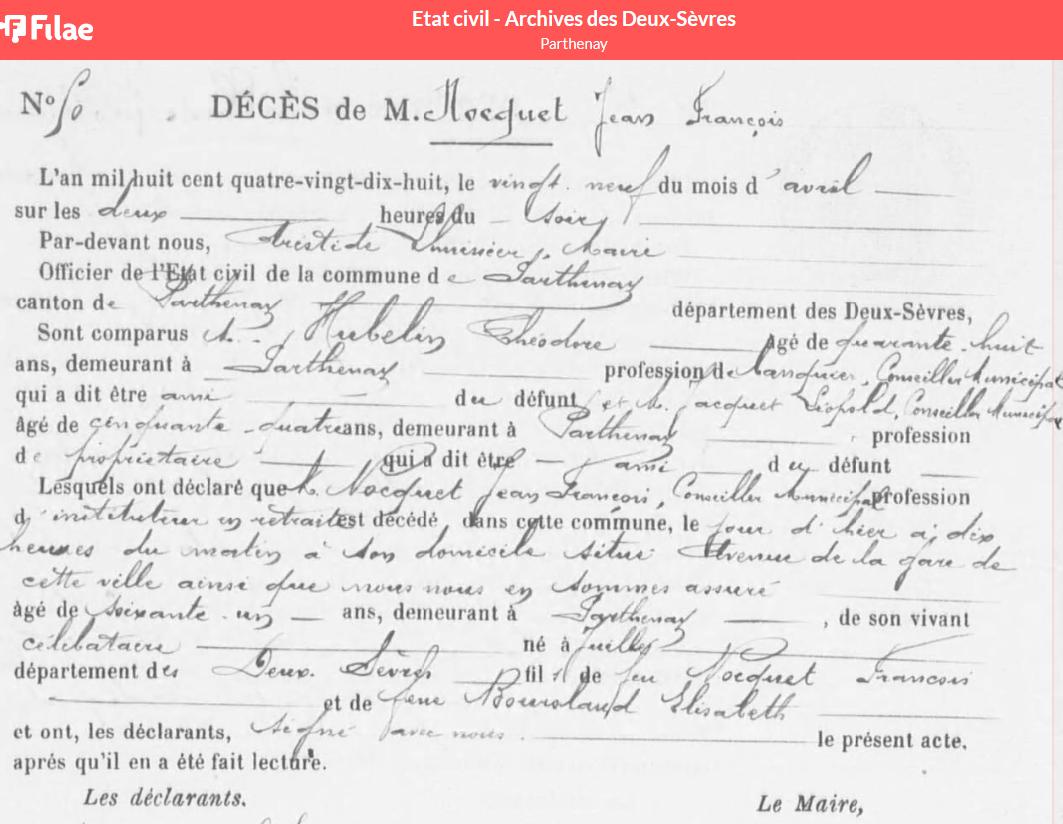 Filae
Etat civil - Archives des Deux-Sèvres
Parthenay
N° 50 DÉCÈS de M. Nocquet Jean François
L'an mil huit cent quatre-vingt-dix-huit, le vingt neuf du mois d'avril
sur les deux heures du soir
Par-devant nous, Aristide Maire
Officier de l'Etat civil de la commune de Parthenay
canton de Parthenay département des Deux-Sèvres,
Sont comparus M. Hubelin Théodore âgé de quarante-huit
ans, demeurant à Parthenay profession de banquier, Conseiller Municipal
qui a dit être ami du défunt, et M. Jacquet Léopold, Conseiller Municipal
âgé de cinquante-quatre ans, demeurant à Parthenay profession
de propriétaire qui a dit être ami du défunt
Lesquels ont déclaré que M. Nocquet Jean François, Conseiller Municipal profession
d'instituteur en retraite est décédé, dans cette commune, le jour d'hier à dix
heures du matin à son domicile situé Avenue de la gare de
cette ville ainsi que nous nous en sommes assuré
âgé de soixante-un ans, demeurant à Parthenay, de son vivant
célibataire né à
département des Deux-Sèvres fils de feu Nocquet François
et de feue Elisabeth
et ont, les déclarants, signé avec nous le présent acte,
après qu'il en a été fait lecture.
Les déclarants. Le Maire,